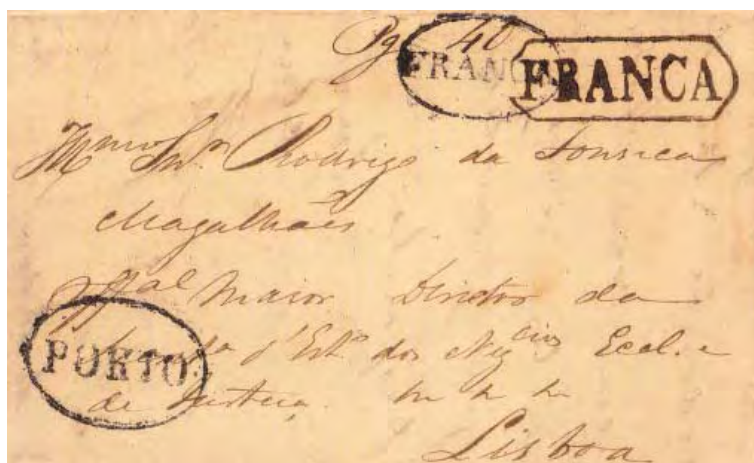 Pg 40
FRANCA FRANCA
Illmo Snr. Rodrigo da Fonseca
Magalhães
Offal Maior Director da
d'Esto dos Negcios Eccl. e
PORTO
de Justiça.
Lisboa